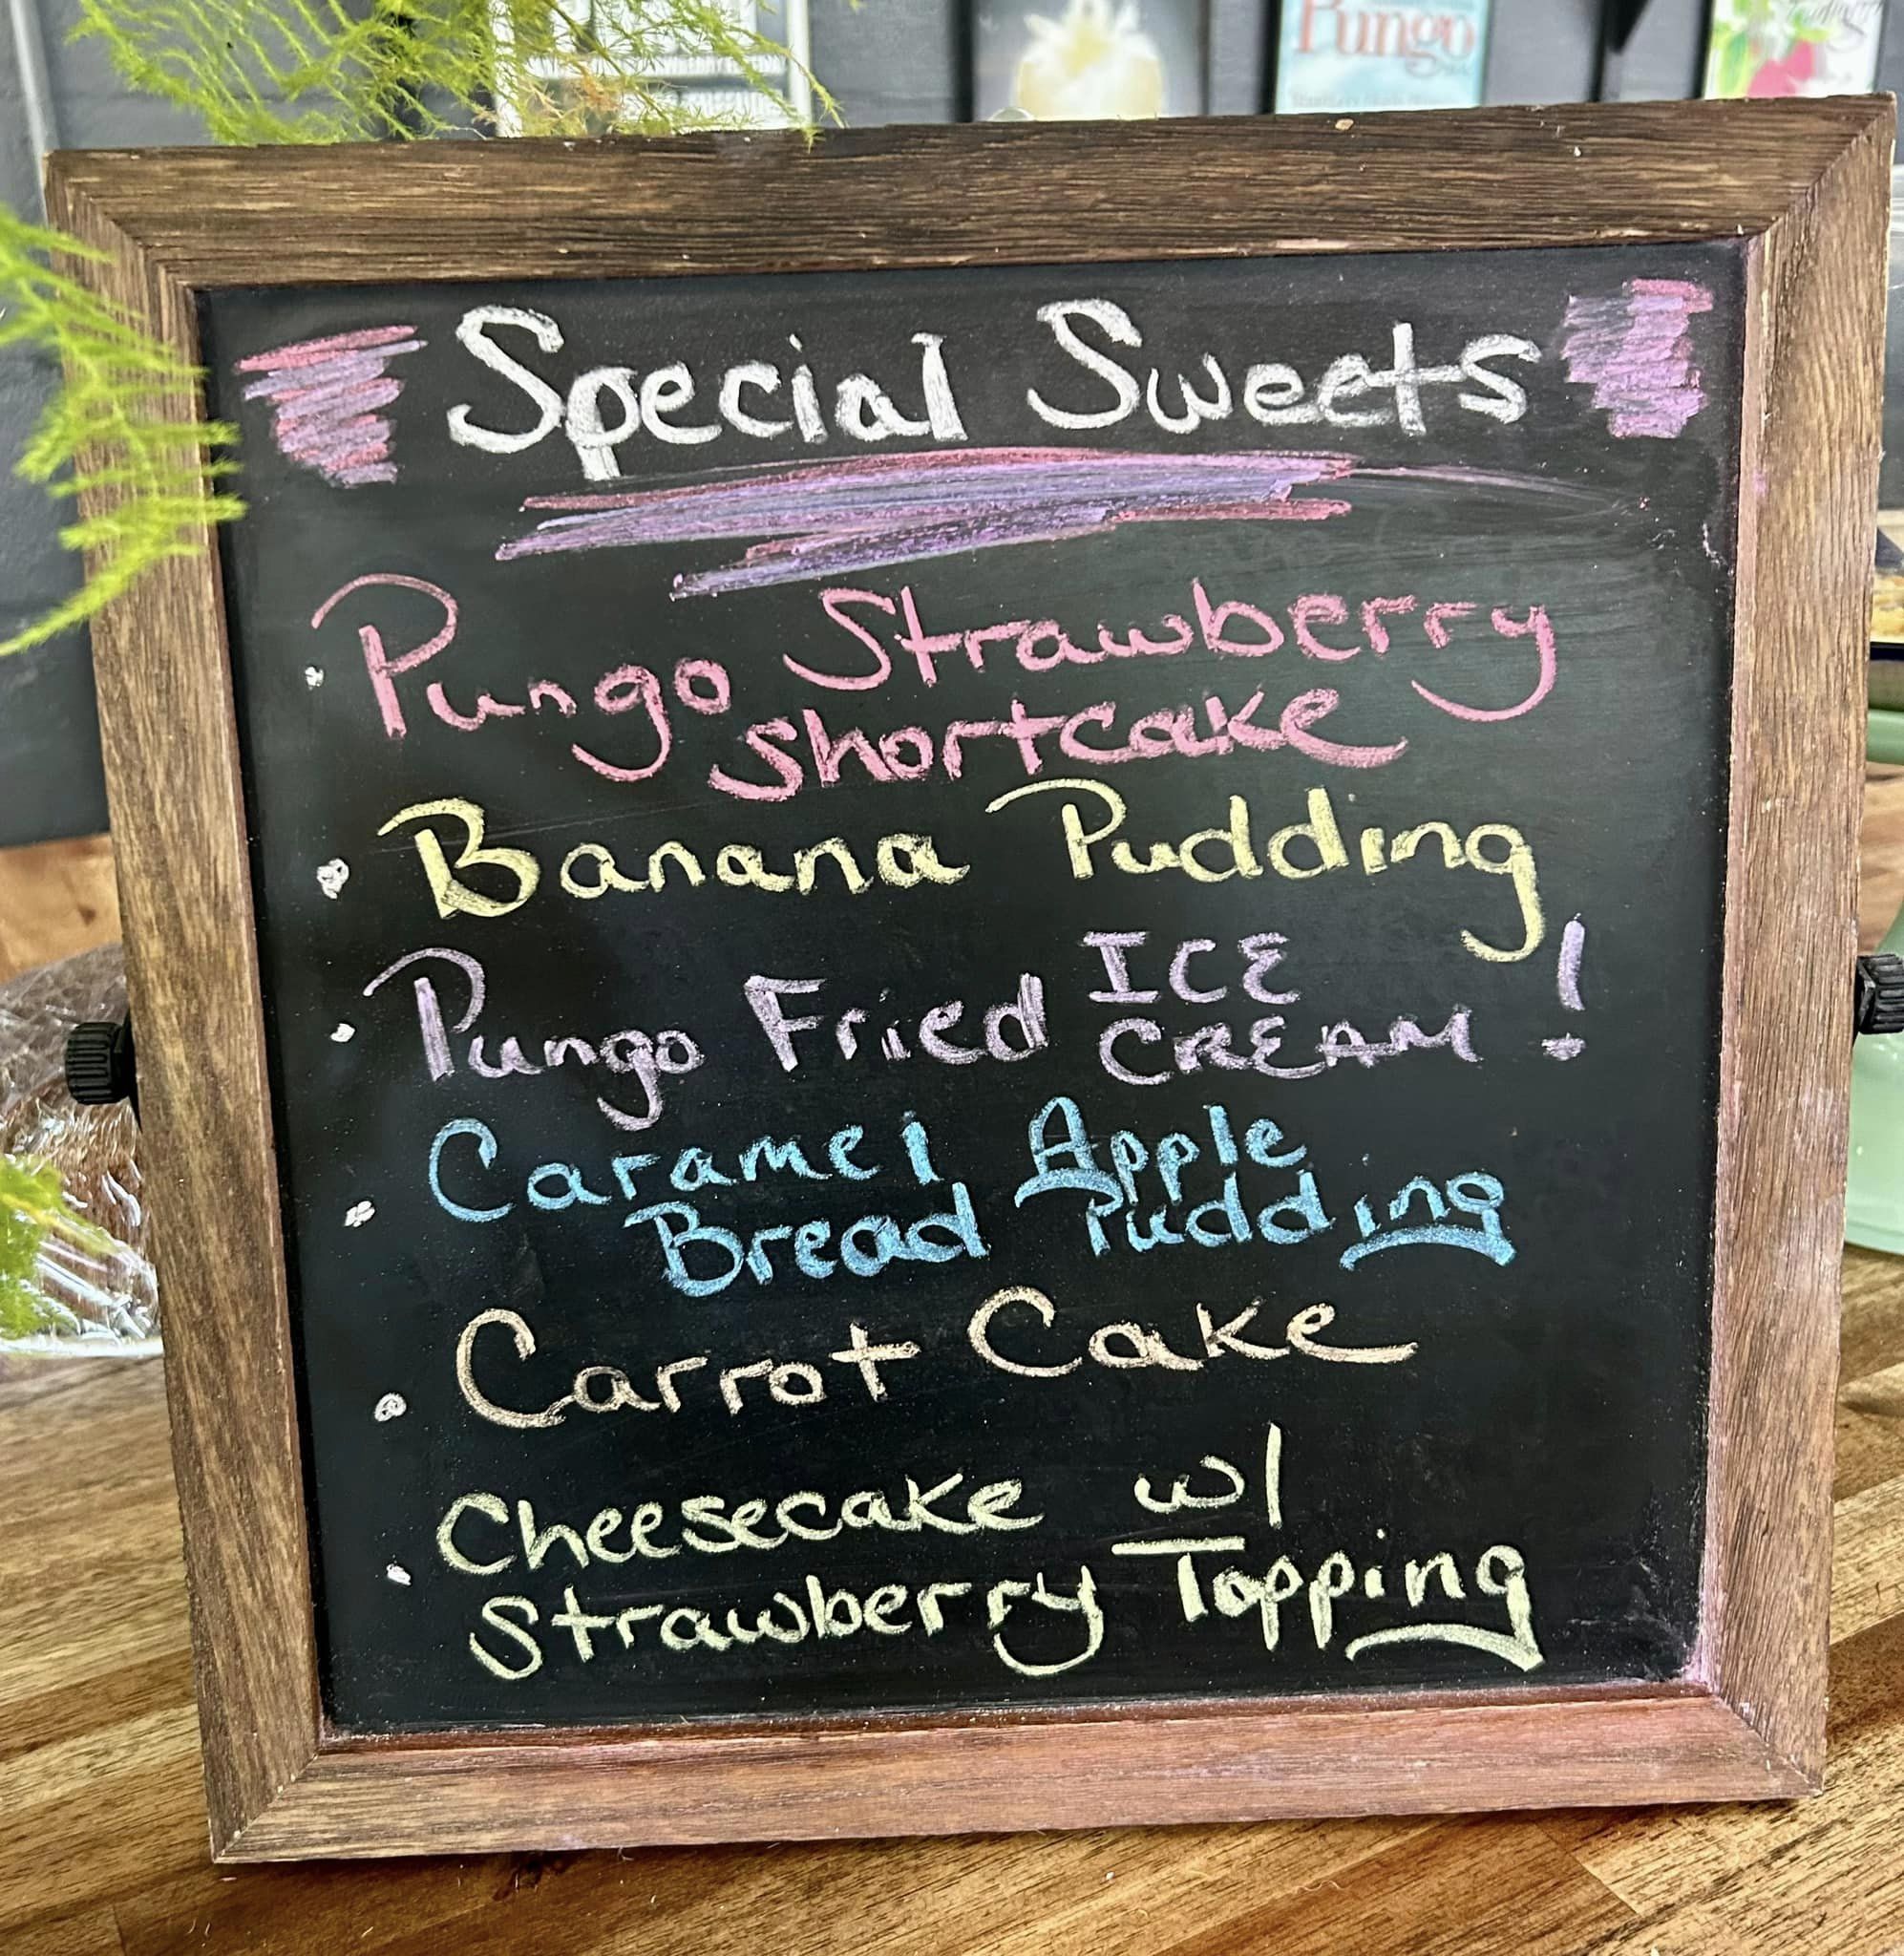 Pungo
Special Sweets
• Pungo Strawberry
shortcake
• Banana Pudding
• Pungo Fried ICE
CREAM!
• Caramel Apple
Bread Pudding
• Carrot Cake
• Cheesecake w/
Strawberry Topping